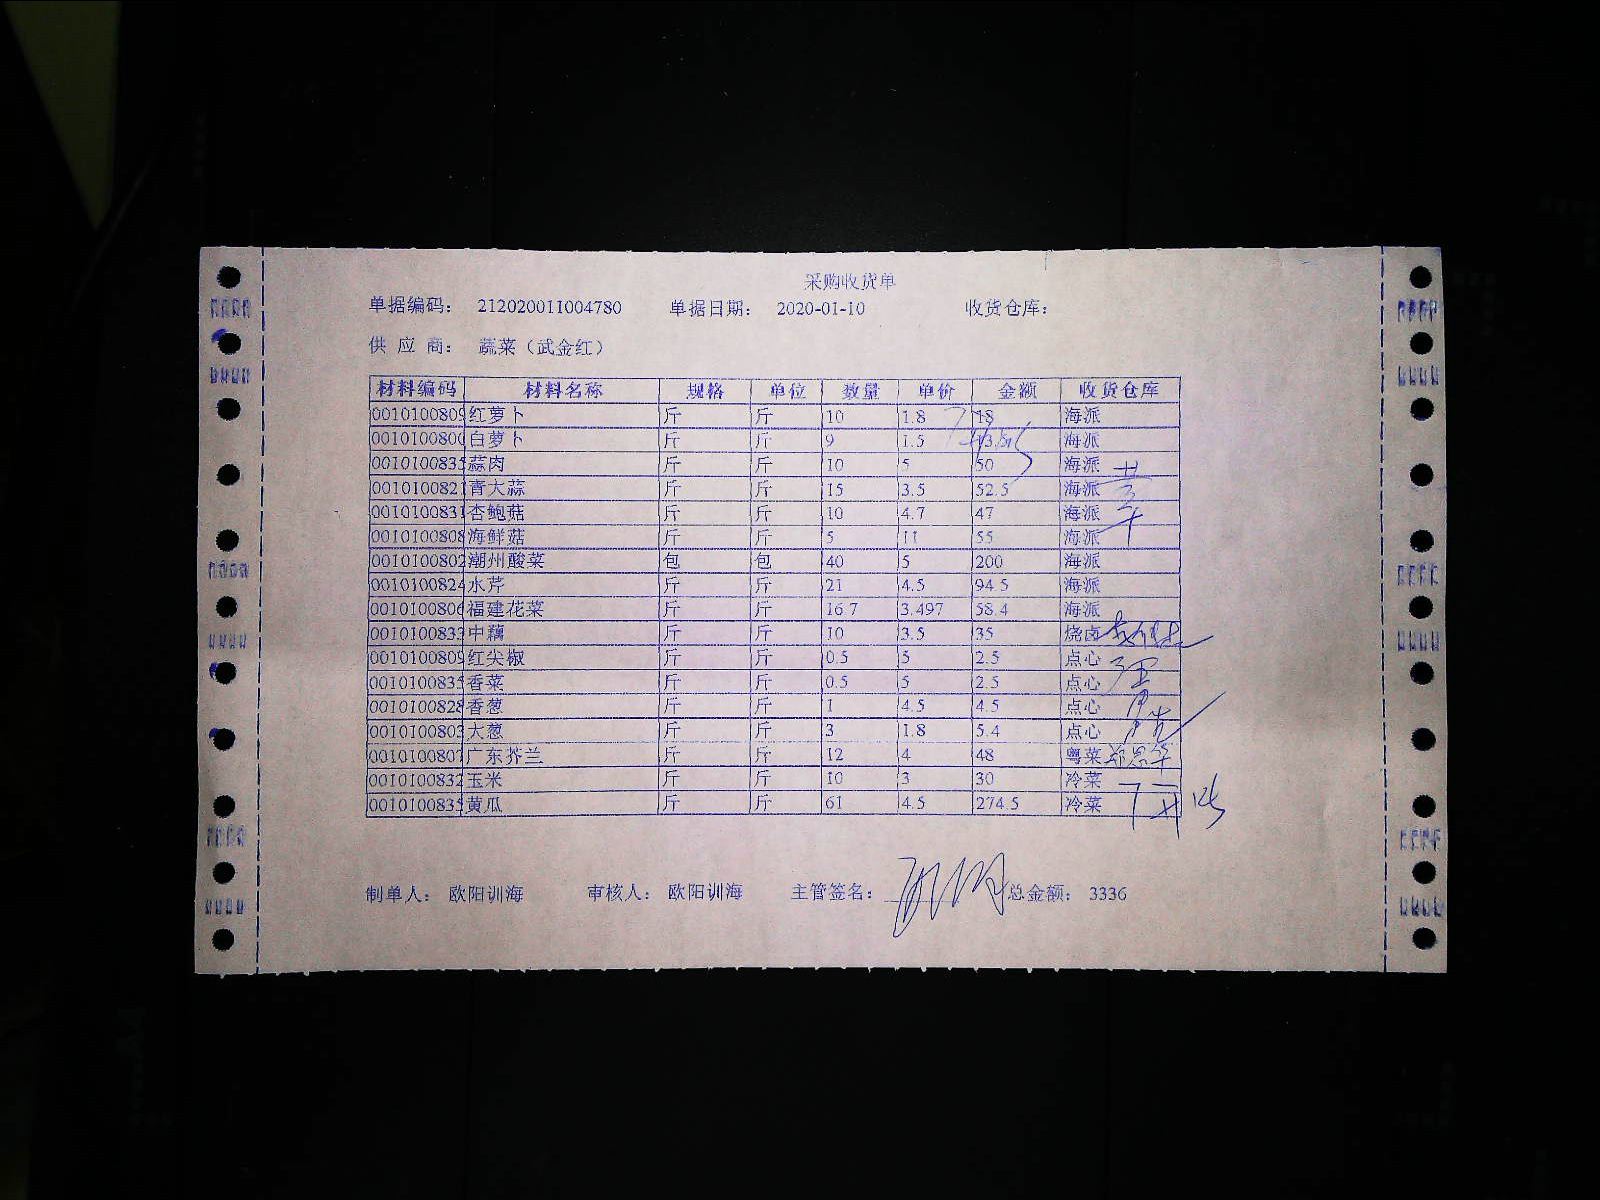 采购收货单
单据编码： 212020011004780 单据日期： 2020-01-10 收货仓库：
供 应 商： 蔬菜（武金红）
材料编码 材料名称 规格 单位 数量 单价 金额 收货仓库
0010100809 红萝卜 斤 斤 10 1.8 18 海派
0010100800 白萝卜 斤 斤 9 1.5 13.5 海派
0010100835 蒜肉 斤 斤 10 5 50 海派
0010100821 青大蒜 斤 斤 15 3.5 52.5 海派
0010100831 杏鲍菇 斤 斤 10 4.7 47 海派
0010100808 海鲜菇 斤 斤 5 11 55 海派
0010100802 潮州酸菜 包 包 40 5 200 海派
0010100824 水芹 斤 斤 21 4.5 94.5 海派
0010100806 福建花菜 斤 斤 16.7 3.497 58.4 海派
0010100833 中藕 斤 斤 10 3.5 35 烧卤
0010100809 红尖椒 斤 斤 0.5 5 2.5 点心
0010100835 香菜 斤 斤 0.5 5 2.5 点心
0010100828 香葱 斤 斤 1 4.5 4.5 点心
0010100803 大葱 斤 斤 3 1.8 5.4 点心
0010100807 广东芥兰 斤 斤 12 4 48 粤菜
0010100832 玉米 斤 斤 10 3 30 冷菜
0010100835 黄瓜 斤 斤 61 4.5 274.5 冷菜
制单人： 欧阳训海 审核人： 欧阳训海 主管签名： 总金额： 3336